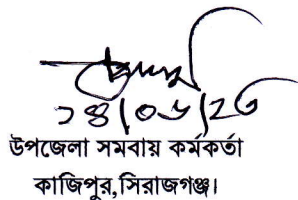 ১৪/০৬/২৩
উপজেলা সমবায় কর্মকর্তা
কাজিপুর,সিরাজগঞ্জ।